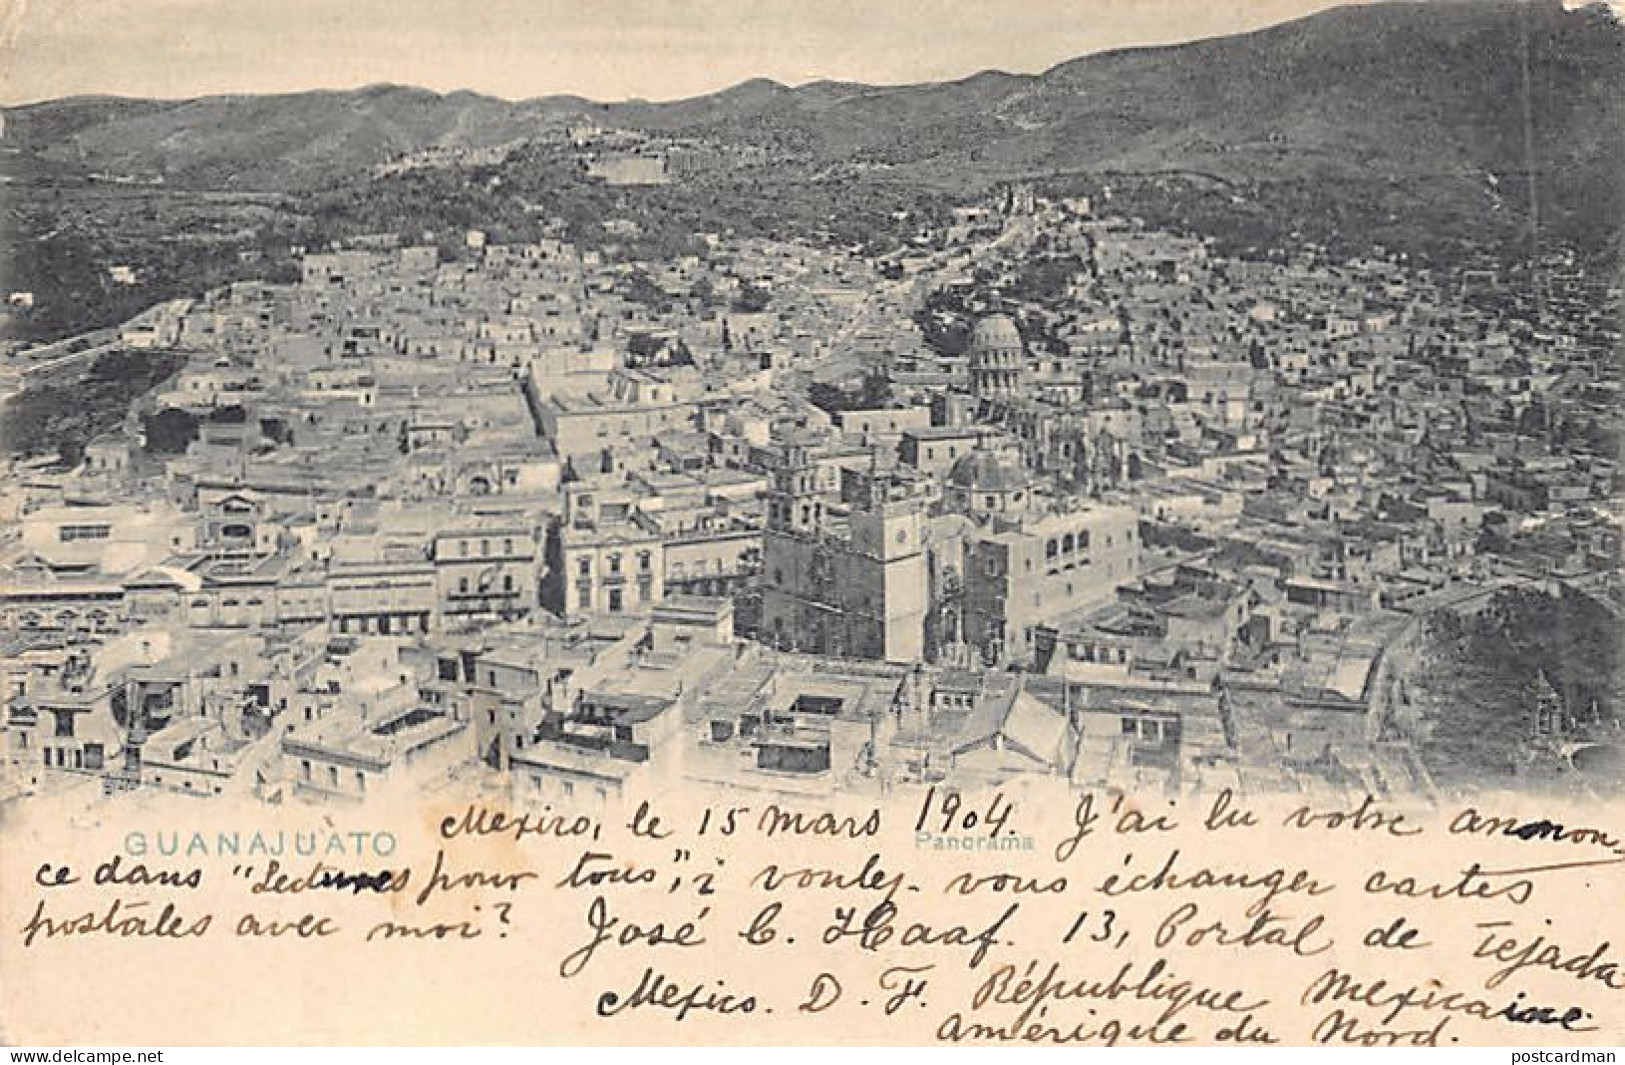 GUANAJUATO
Panorama
Mexico, le 15 mars 1904. J'ai lu votre annon-
ce dans "Lectures pour tous", ¿ voulez-vous échanger cartes
postales avec moi? José C. Haaf. 13, Portal de Tejada
Mexico. D. F. République Mexicaine
Amérique du Nord.
delcampe.net
postcardman